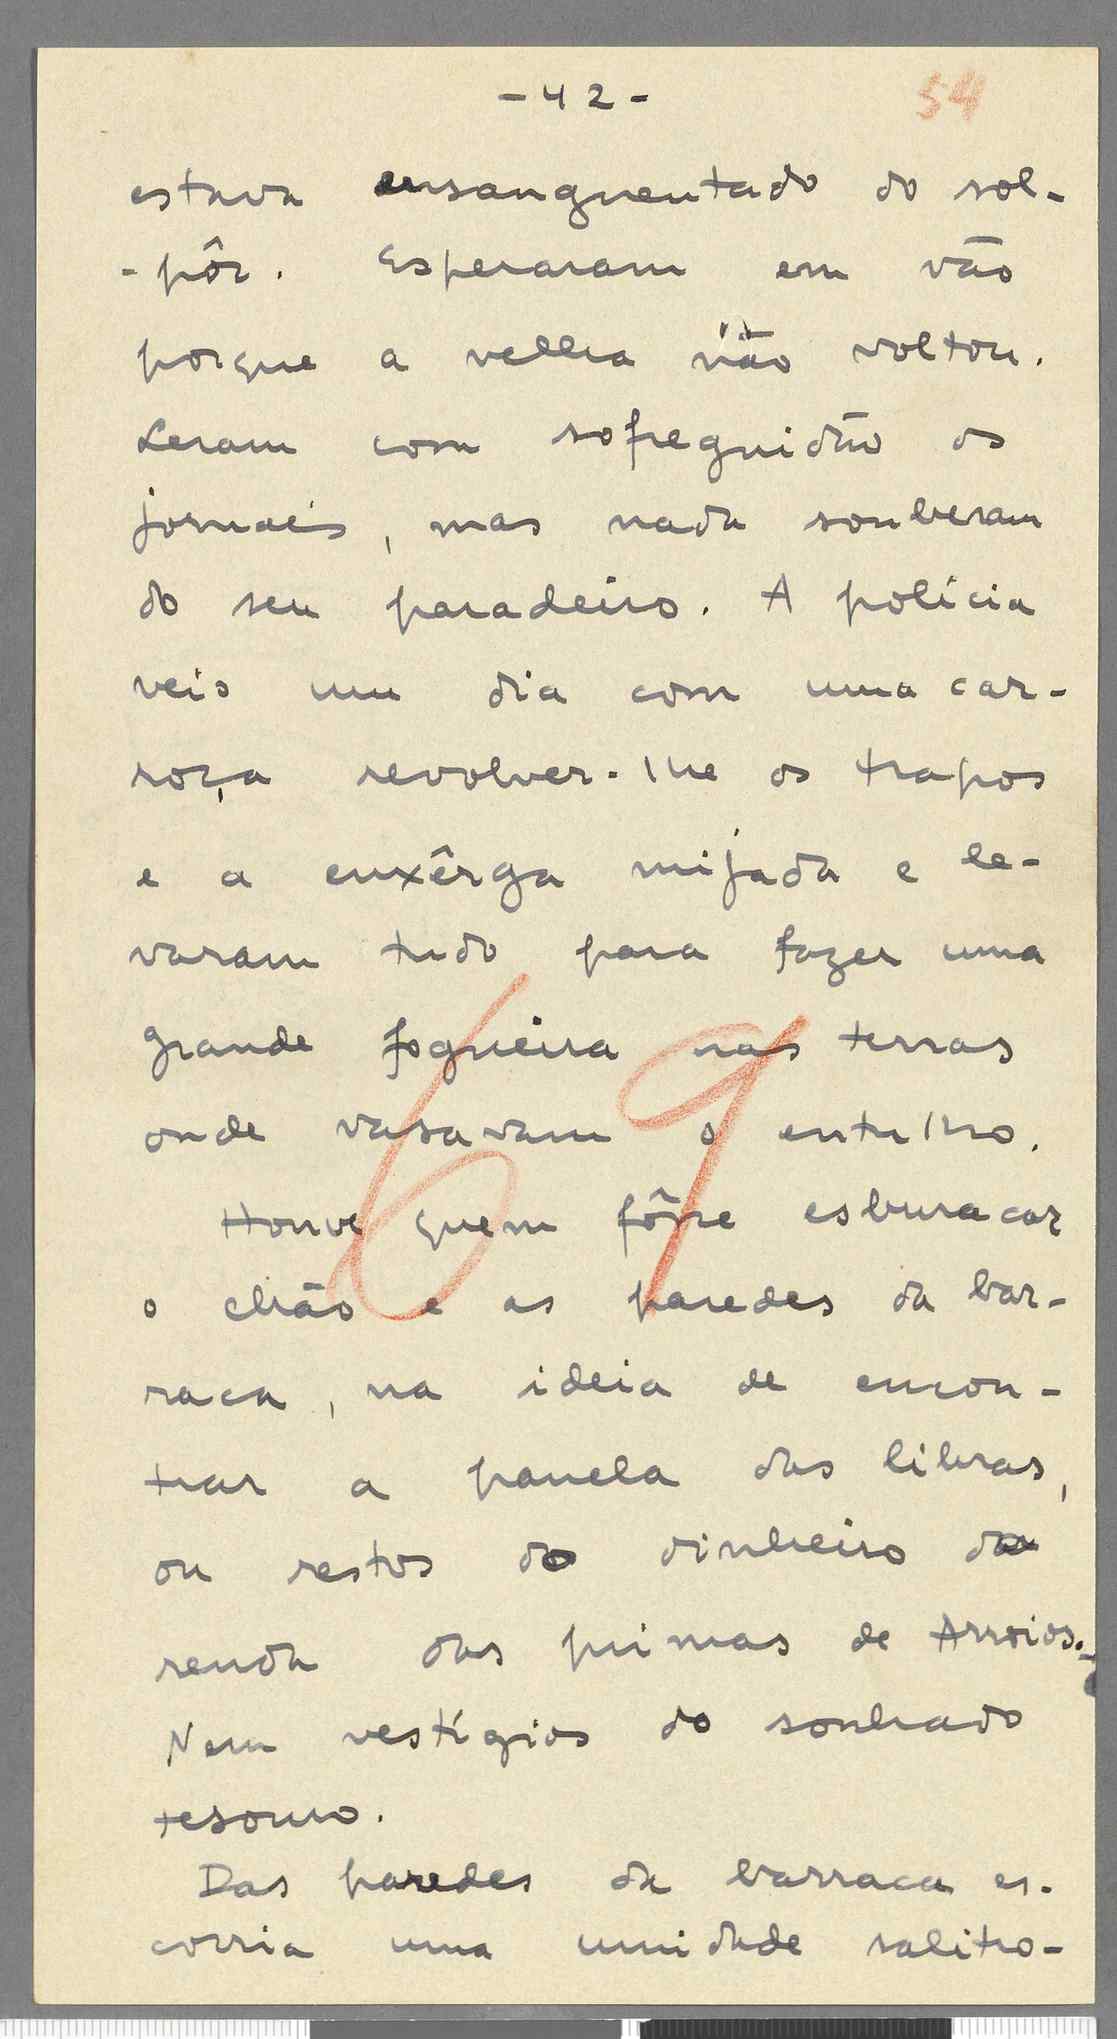 - 42 -
54
estava ensanguentado do sol-
-pôr. Esperaram em vão
porque a velha não voltou.
Leram com sofreguidão os
jornais, mas nada souberam
do seu paradeiro. A polícia
veis um dia com uma car-
roça revolver-lhe os trapos
e a enxêrga mijada e le-
varam tudo para fazer uma
grande fogueira nas terras
onde vasavam o entulho.
Houve quem fôsse esburacar
o chão e as paredes da bar-
raca, na ideia de encon-
trar a panela das libras,
ou restos do dinheiro da
renda das primas de Arroios.
Nem vestígios do sonhado
tesouro.
Das paredes da barraca es-
corria uma umidade salitro-
69